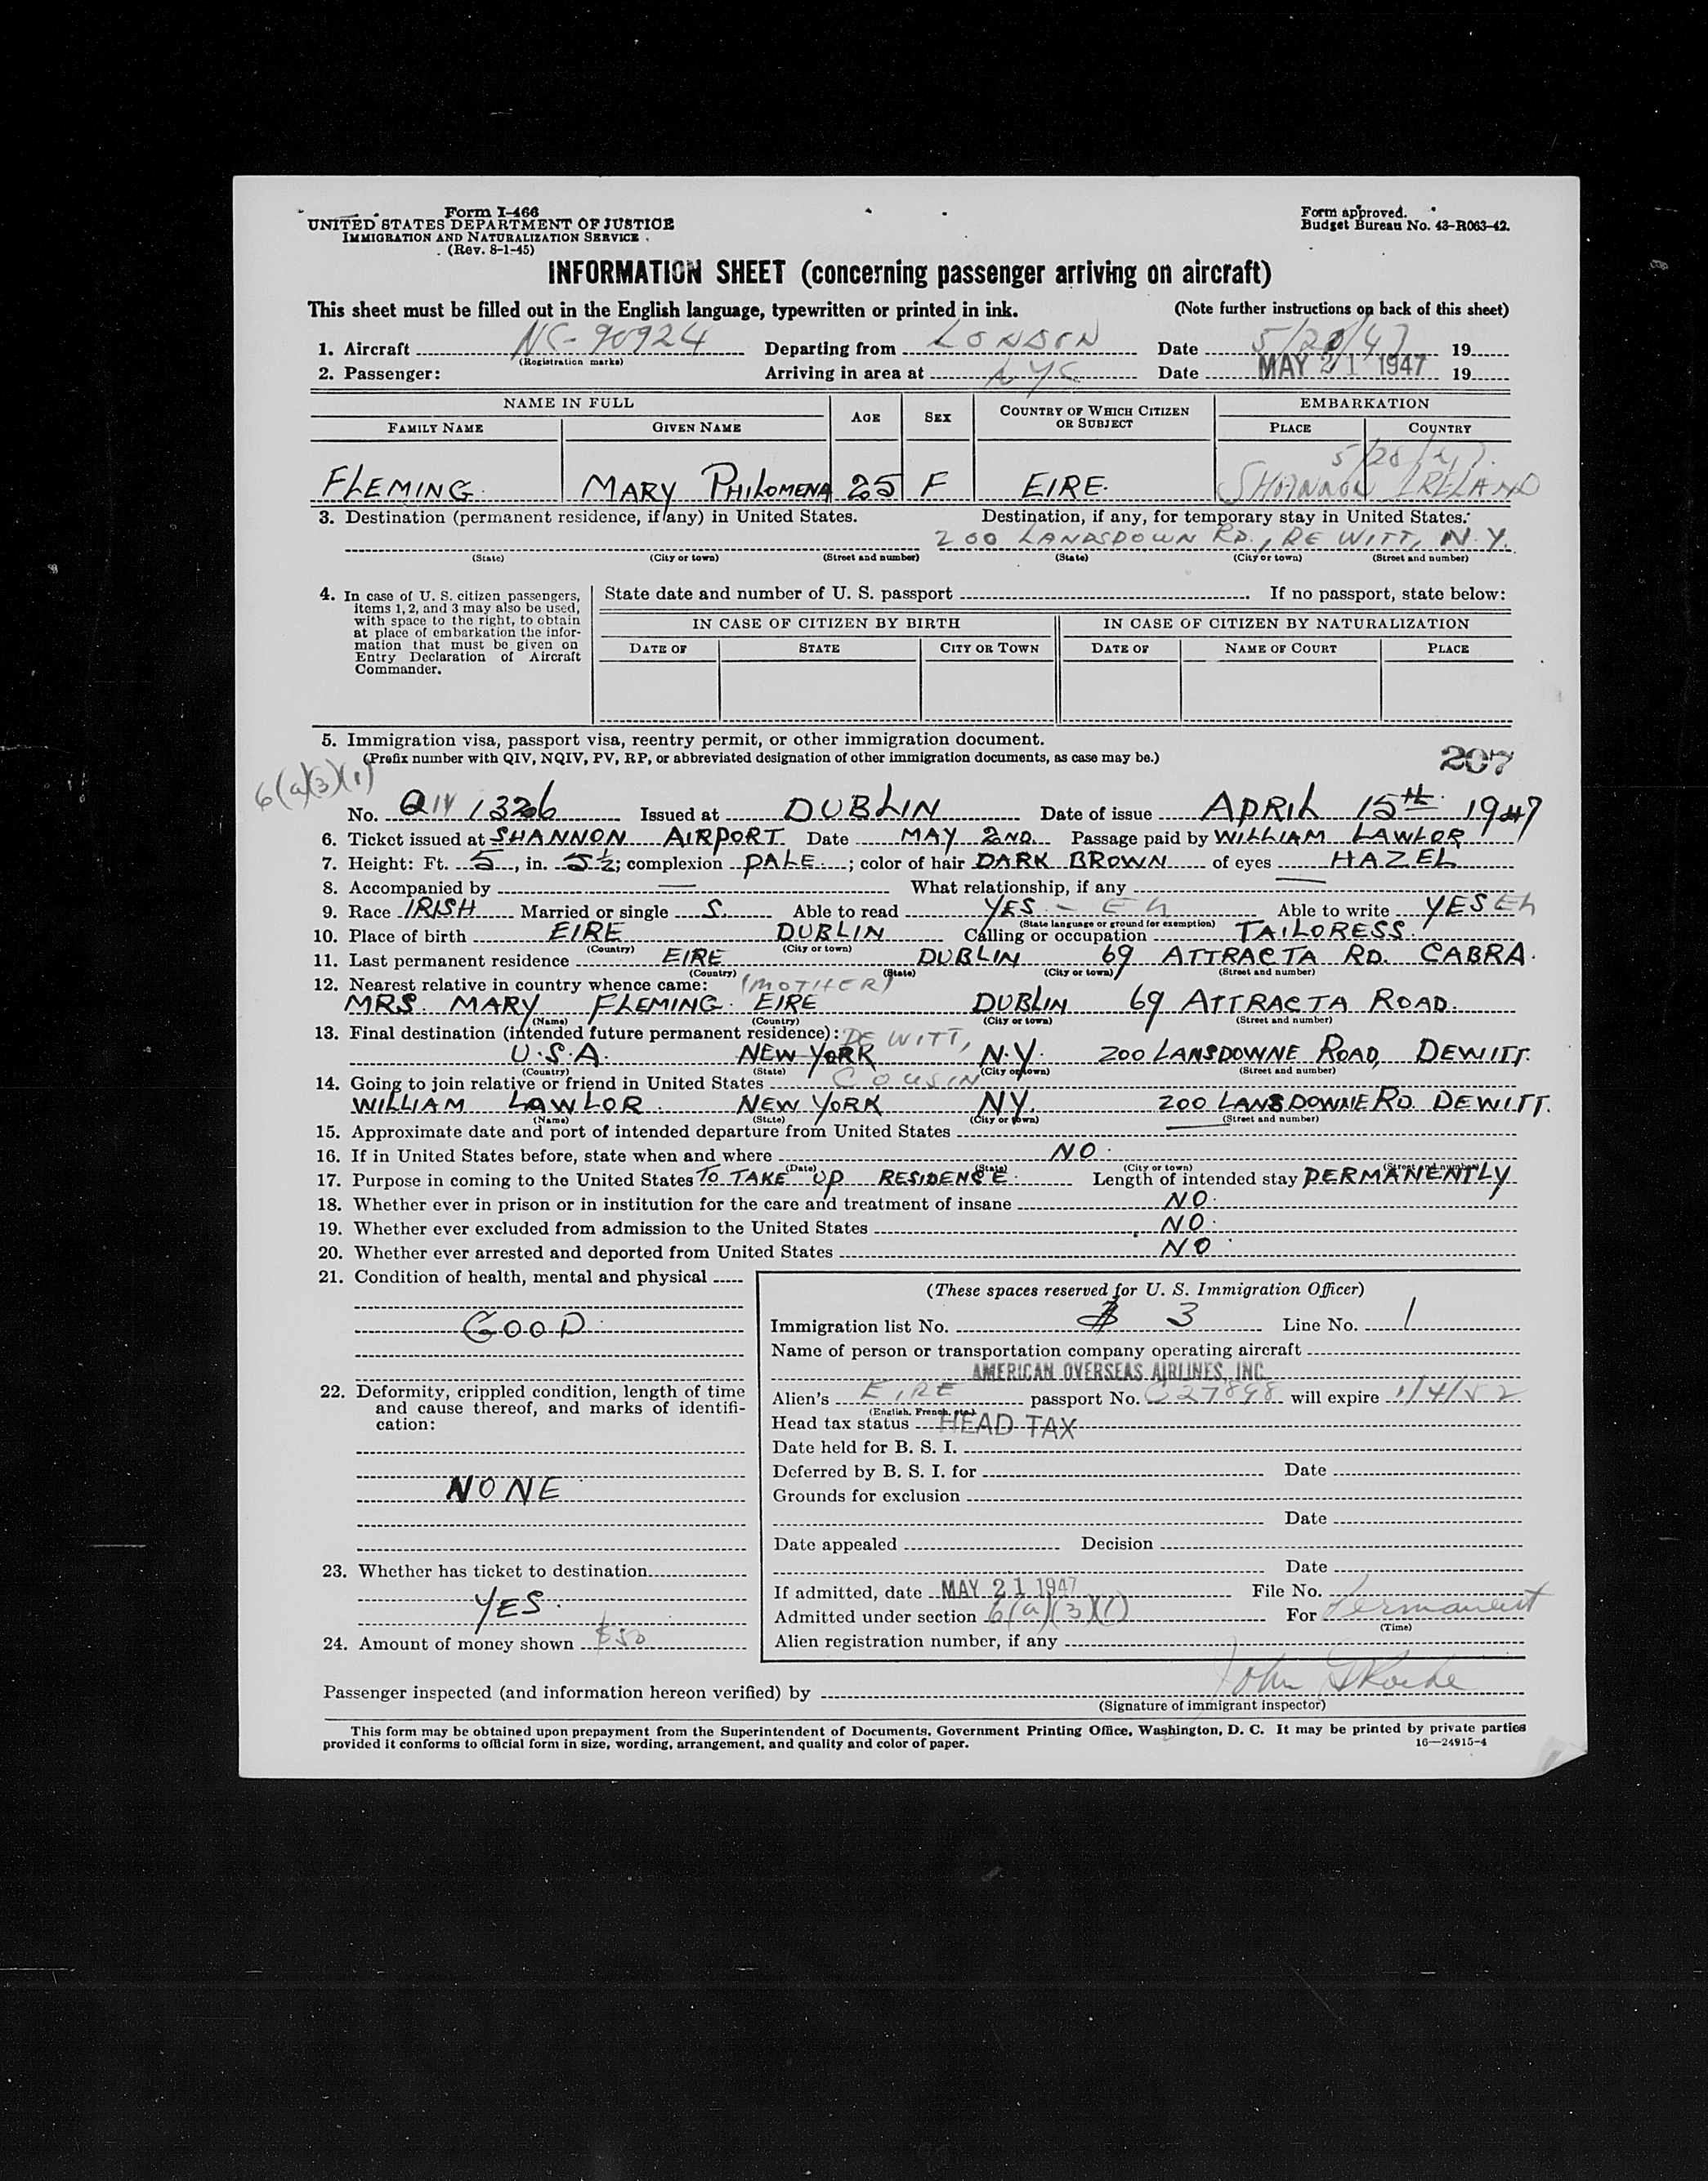 Form I-466
UNITED STATES DEPARTMENT OF JUSTICE
IMMIGRATION AND NATURALIZATION SERVICE
(Rev. 8-1-45)
Form approved.
Budget Bureau No. 43-R063-42.
INFORMATION SHEET (concerning passenger arriving on aircraft)
This sheet must be filled out in the English language, typewritten or printed in ink. (Note further instructions on back of this sheet)
1. Aircraft NC-90924 Departing from LONDON Date 5/20/47 19
(Registration marks)
2. Passenger: Arriving in area at NYC Date MAY 21 1947 19
NAME IN FULL AGE SEX COUNTRY OF WHICH CITIZEN OR SUBJECT EMBARKATION
FAMILY NAME GIVEN NAME PLACE COUNTRY
5/20/47.
FLEMING MARY PHILOMENA 25 F EIRE. SHANNON IRELAND
3. Destination (permanent residence, if any) in United States. Destination, if any, for temporary stay in United States.
200 LANDSDOWN RD., DE WITT, N.Y.
(State) (City or town) (Street and number) (State) (City or town) (Street and number)
4. In case of U. S. citizen passengers, items 1, 2, and 3 may also be used, with space to the right, to obtain at place of embarkation the information that must be given on Entry Declaration of Aircraft Commander.
State date and number of U. S. passport If no passport, state below:
IN CASE OF CITIZEN BY BIRTH IN CASE OF CITIZEN BY NATURALIZATION
DATE OF STATE CITY OR TOWN DATE OF NAME OF COURT PLACE
5. Immigration visa, passport visa, reentry permit, or other immigration document.
(Prefix number with QIV, NQIV, PV, RP, or abbreviated designation of other immigration documents, as case may be.) 207
6(a)(3)(1)
No. QIV 1326 Issued at DUBLIN Date of issue APRIL 15th 1947
6. Ticket issued at SHANNON AIRPORT Date MAY 2ND Passage paid by WILLIAM LAWLOR
7. Height: Ft. 5, in. 5½; complexion PALE; color of hair DARK BROWN of eyes HAZEL
8. Accompanied by — What relationship, if any —
9. Race IRISH Married or single S. Able to read YES - Eh Able to write YES Eh
(State language or ground for exemption)
10. Place of birth EIRE DUBLIN Calling or occupation TAILORESS.
(Country) (City or town)
11. Last permanent residence EIRE DUBLIN 69 ATTRACTA RD. CABRA.
(Country) (State) (City or town) (Street and number)
12. Nearest relative in country whence came: (MOTHER)
MRS. MARY FLEMING. EIRE DUBLIN 69 ATTRACTA ROAD.
(Name) (Country) (City or town) (Street and number)
13. Final destination (intended future permanent residence): DE WITT,
U.S.A. NEW YORK N.Y. 200 LANSDOWNE ROAD, DEWITT.
(Country) (State) (City or town) (Street and number)
14. Going to join relative or friend in United States COUSIN
WILLIAM LAWLOR. NEW YORK NY. 200 LANSDOWNE RD. DEWITT.
(Name) (State) (City or town) (Street and number)
15. Approximate date and port of intended departure from United States —
16. If in United States before, state when and where NO.
(Date) (State) (City or town) (Street and number)
17. Purpose in coming to the United States TO TAKE UP RESIDENCE. Length of intended stay PERMANENTLY
18. Whether ever in prison or in institution for the care and treatment of insane NO.
19. Whether ever excluded from admission to the United States NO.
20. Whether ever arrested and deported from United States NO.
21. Condition of health, mental and physical
GOOD.
22. Deformity, crippled condition, length of time and cause thereof, and marks of identification:
NONE
23. Whether has ticket to destination
YES.
24. Amount of money shown $50
(These spaces reserved for U. S. Immigration Officer)
Immigration list No. 3 Line No. 1
Name of person or transportation company operating aircraft
AMERICAN OVERSEAS AIRLINES, INC.
Alien's EIRE passport No. C27898 will expire 1/4/52
(English, French, etc.)
Head tax status HEAD TAX
Date held for B. S. I.
Deferred by B. S. I. for Date
Grounds for exclusion
Date
Date appealed Decision
Date
If admitted, date MAY 21 1947 File No.
Admitted under section 6(a)(3)(1) For Permanent
(Time)
Alien registration number, if any
Passenger inspected (and information hereon verified) by John
(Signature of immigrant inspector)
This form may be obtained upon prepayment from the Superintendent of Documents, Government Printing Office, Washington, D. C. It may be printed by private parties
provided it conforms to official form in size, wording, arrangement, and quality and color of paper. 16—24915-4